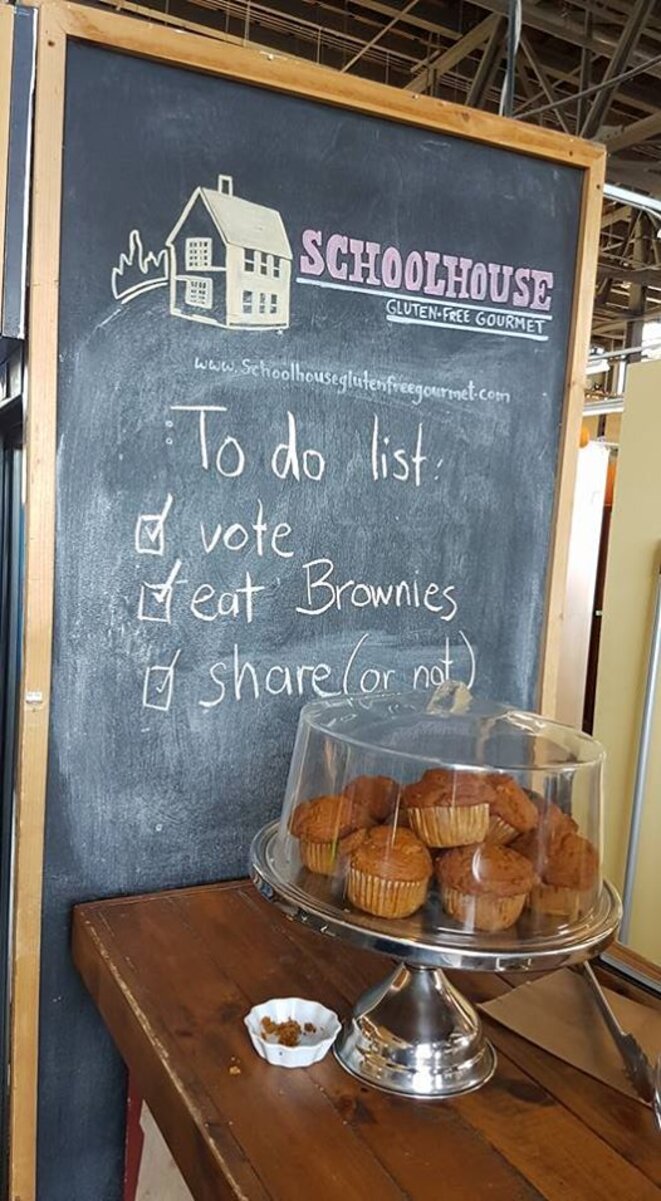 SCHOOLHOUSE
GLUTEN-FREE GOURMET
www.Schoolhouseglutenfreegourmet.com
To do list:
vote
eat Brownies
share (or not)